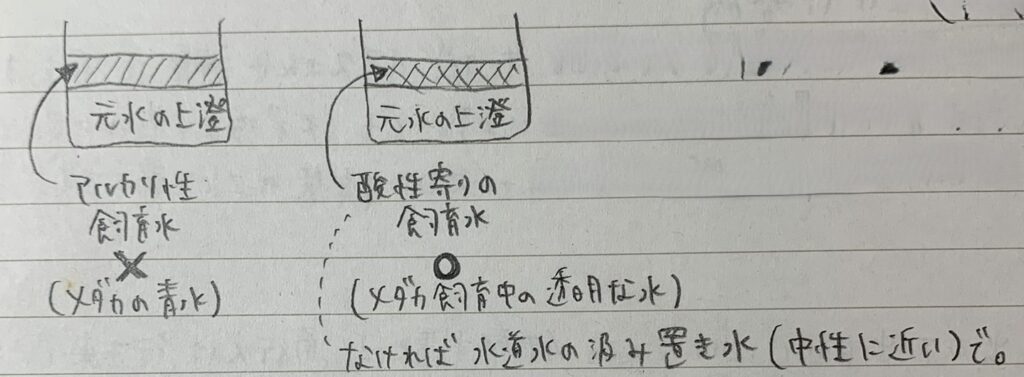 元水の上澄
元水の上澄
アルカリ性
飼育水
×
(メダカの青水)
酸性寄りの
飼育水
○
(メダカ飼育中の透明な水)
なければ水道水の汲み置き水(中性に近い)で。